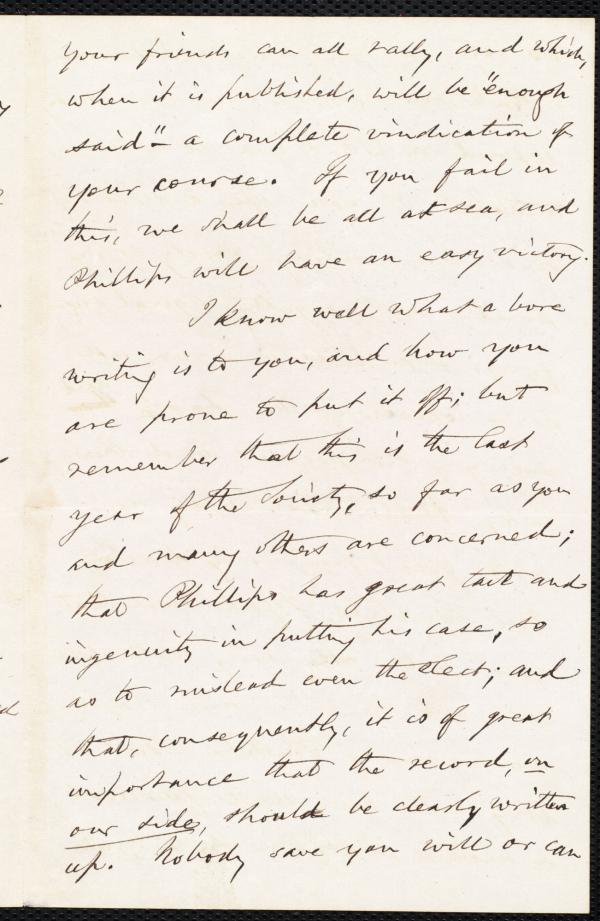 your friends can all rally, and which,
when it is published, will be "enough
said" - a complete vindication of
your course. If you fail in
this, we shall be all at sea, and
Phillips will have an easy victory.
I know well what a bore
writing is to you, and how you
are prone to put it off; but
remember that this is the last
year of the Society, so far as you
and many others are concerned;
that Phillips has great tact and
ingenuity in putting his case, so
as to mislead even the elect; and
that, consequently, it is of great
importance that the record, on
our side, should be clearly written
up. Nobody save you will or can